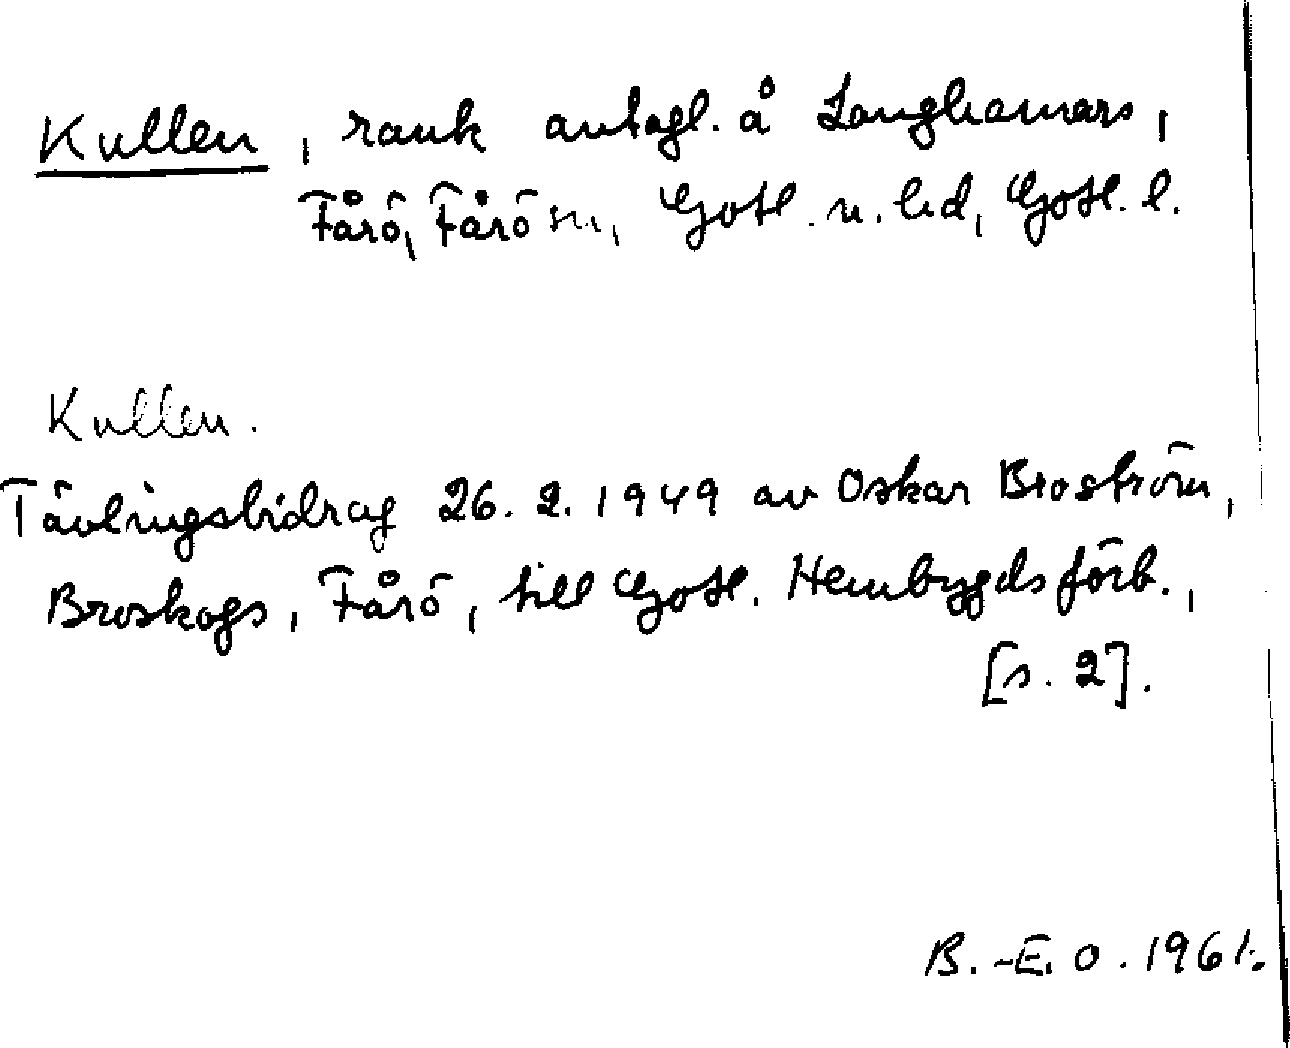 Kullen, rauk antagl. å Langhamars,
Fårö, Fårö sn, Gotl. n. hd, Gotl. l.
Kullen.
Tävlingsbidrag 26. 2. 1949 av Oskar Broström,
Broskogs, Fårö, till Gotl. Hembygdsförb.,
[s. 2].
B.-E. O. 1961.